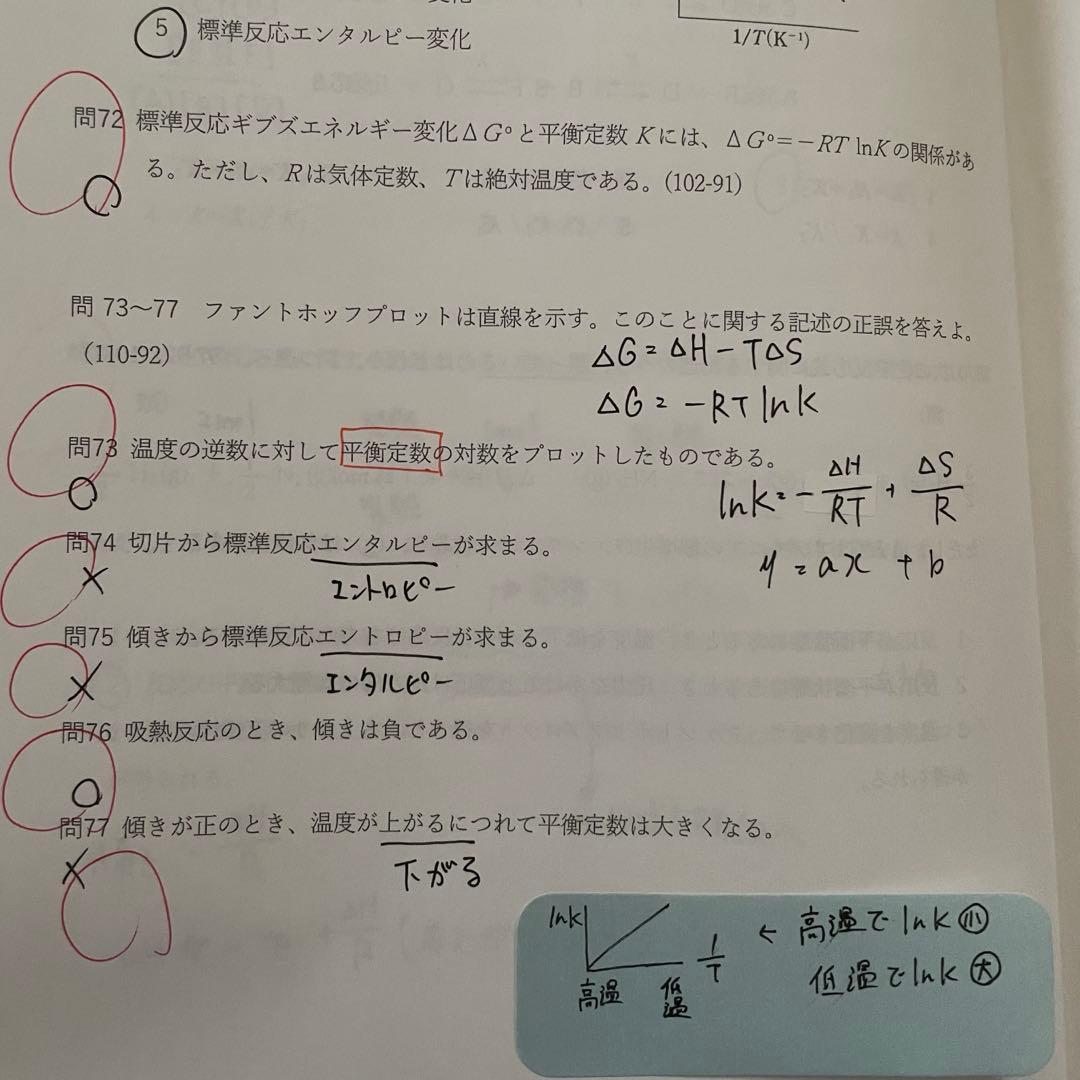 変化
5 標準反応エンタルピー変化
1/T(K⁻¹)
問72 標準反応ギブズエネルギー変化ΔG°と平衡定数Kには、ΔG°=−RT lnKの関係があ
る。ただし、Rは気体定数、Tは絶対温度である。(102-91)
○
問 73〜77 ファントホッフプロットは直線を示す。このことに関する記述の正誤を答えよ。
(110-92)
ΔG = ΔH − TΔS
ΔG = −RT lnK
問73 温度の逆数に対して平衡定数の対数をプロットしたものである。
○
lnK = − ΔH/RT + ΔS/R
y = ax + b
問74 切片から標準反応エンタルピーが求まる。
× エントロピー
問75 傾きから標準反応エントロピーが求まる。
× エンタルピー
問76 吸熱反応のとき、傾きは負である。
○
問77 傾きが正のとき、温度が上がるにつれて平衡定数は大きくなる。
× 下がる
lnK
1/T
高温 低温
← 高温で lnK 小
低温で lnK 大